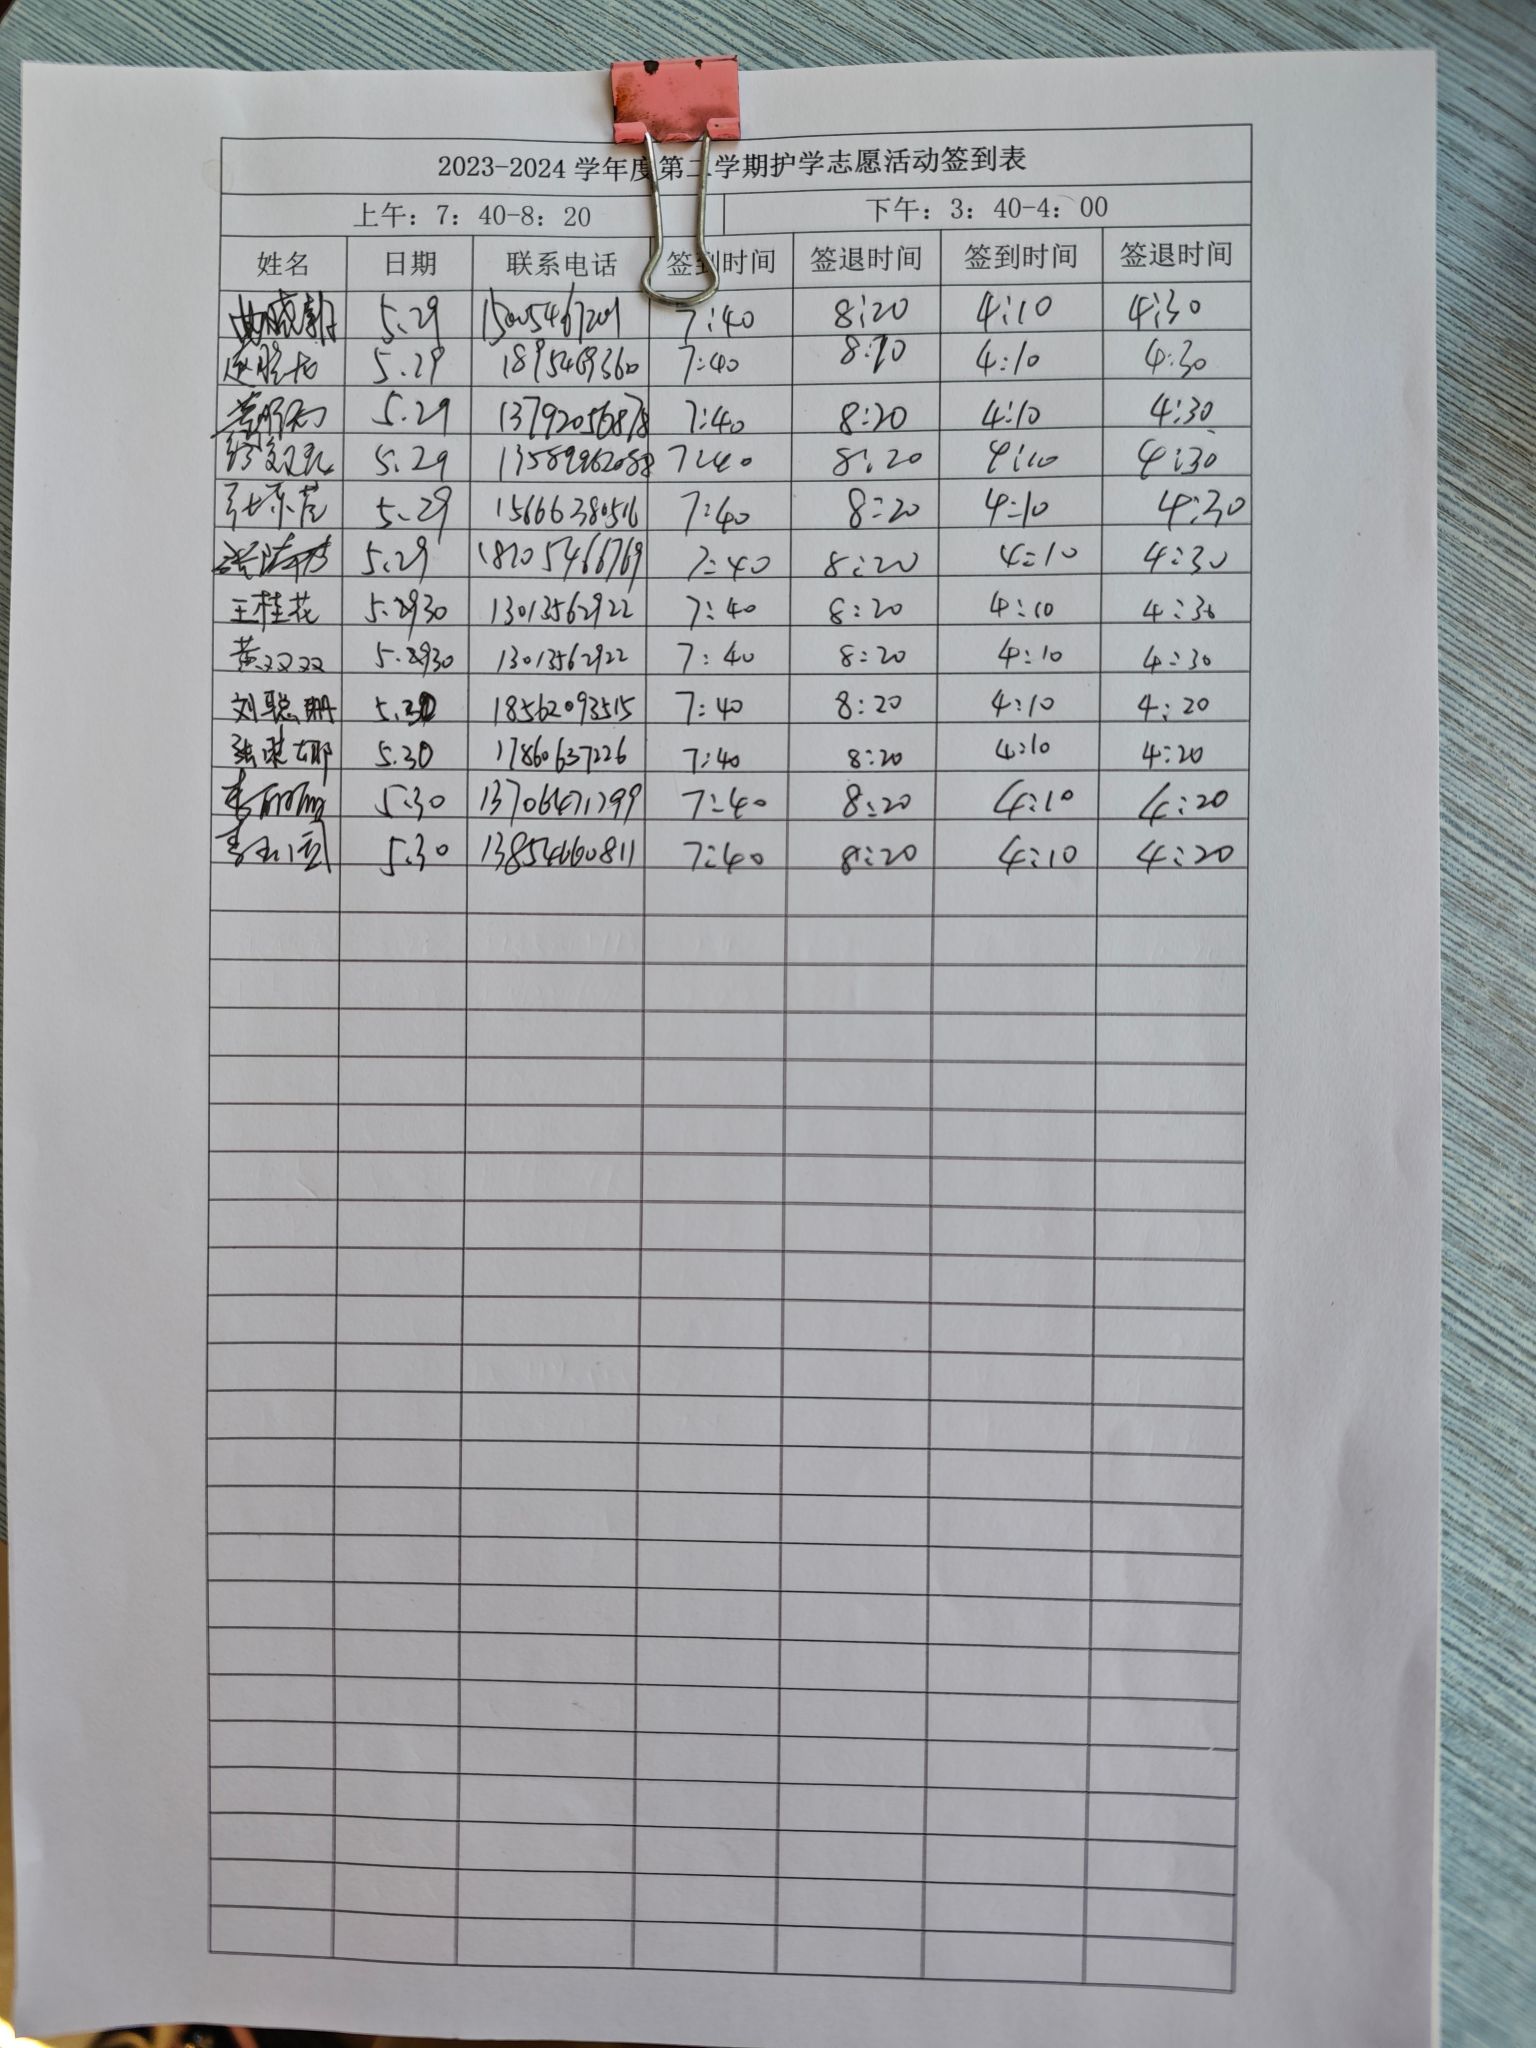 2023-2024 学年度第二学期护学志愿活动签到表
上午: 7: 40-8: 20 下午: 3: 40-4: 00
姓名 日期 联系电话 签到时间 签退时间 签到时间 签退时间
5.29 15005467209 7:40 8:20 4:10 4:30
5.29 7:40 4:10 4:30
5.29 13792056878 7:40 8:20 4:10 4:30
5.29 13589962088 7:40 8:20 4:10 4:30
5.29 15666380516 7:40 8:20 4:10 4:30
5.29 18705466769 7:40 8:20 4:10 4:30
王桂花 13013562922 7:40 8:20 4:10 4:30
黄双双 13013562922 7:40 8:20 4:10 4:30
刘聪珊 5.30 18562093515 7:40 8:20 4:10 4:20
5.30 17860637226 7:40 8:20 4:10 4:20
5.30 13706471799 7:40 8:20 4:10 4:20
5.30 13854660811 7:40 8:20 4:10 4:20